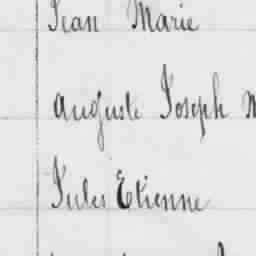 Jean Marie
Auguste Joseph
Jules Etienne